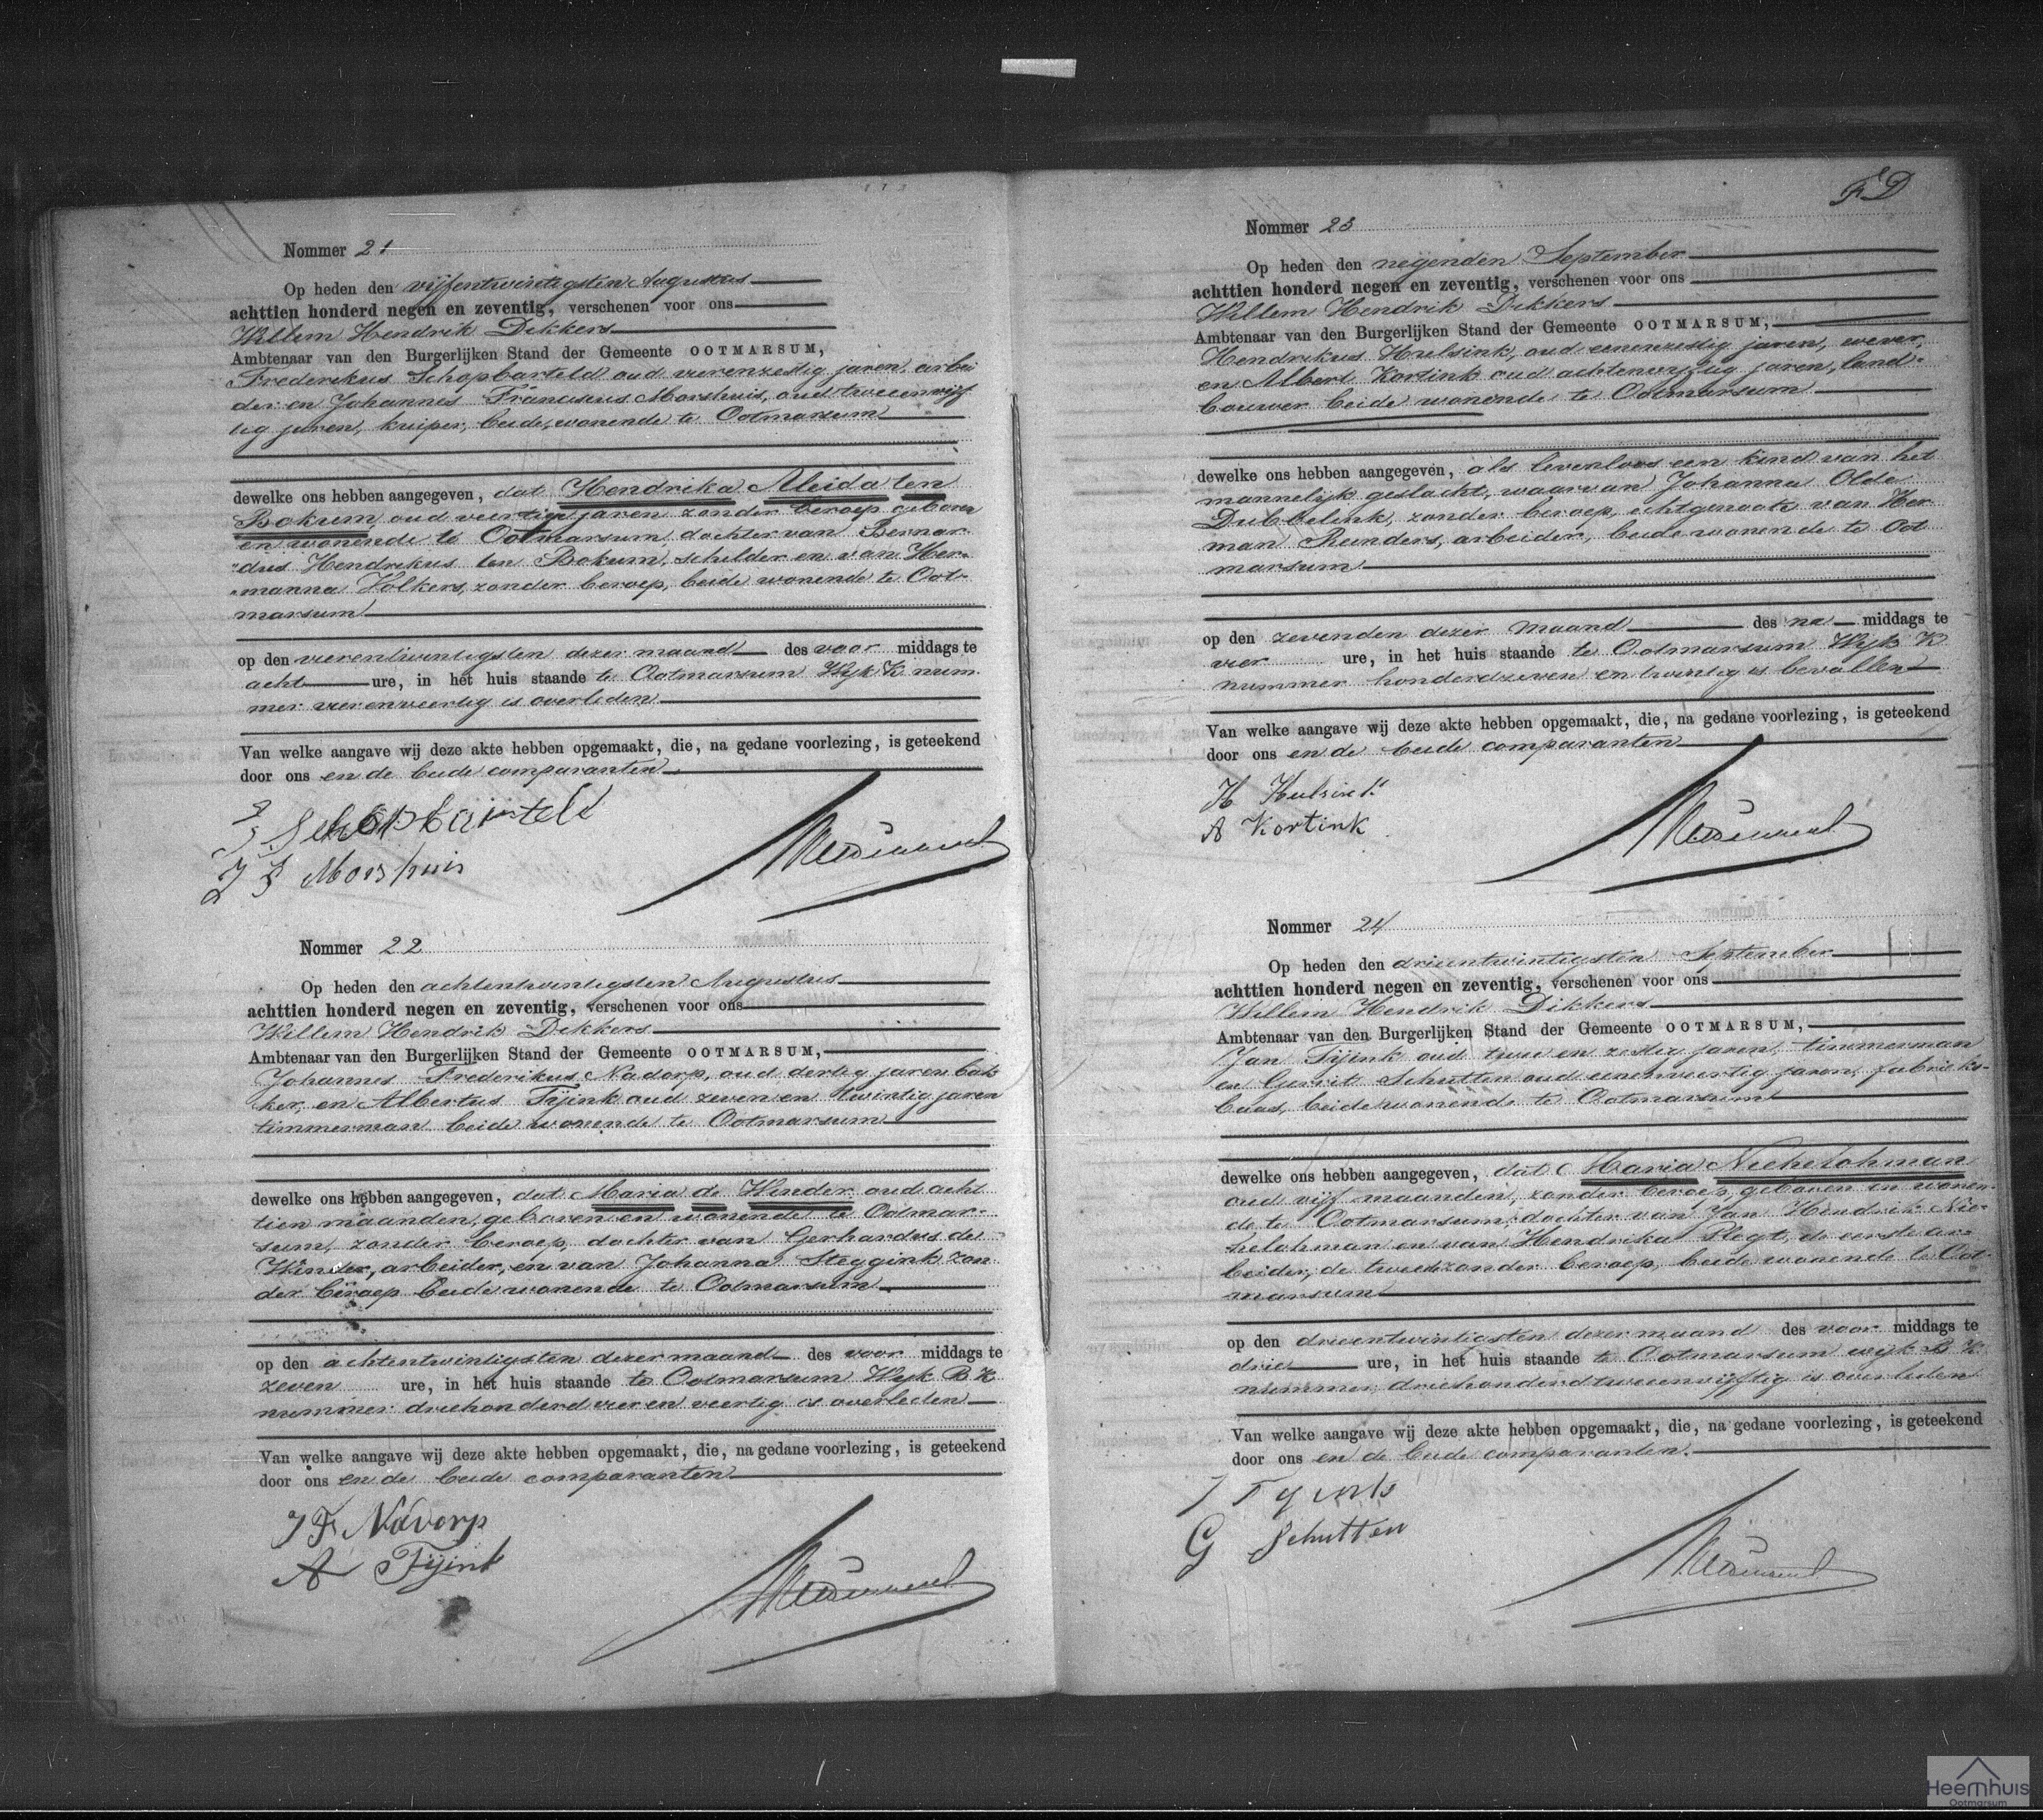 Nommer 21
Op heden den vijfentwintigsten Augustus
achttien honderd negen en zeventig, verschenen voor ons
Willem Hendrik Dikkers
Ambtenaar van den Burgerlijken Stand der Gemeente OOTMARSUM,
Frederikus Schopbarteld oud vierenzestig jaren, arbei
der en Johannes Franciscus Morshuis, oud tweeenvijf
tig jaren, kuiper, beide wonende te Ootmarsum
dewelke ons hebben aangegeven, dat Hendrika Aleida ten
Bokum, oud veertien jaren zonder beroep geboren
en wonende te Ootmarsum, dochter van Bernar-
dus Hendrikus ten Bokum, schilder en van Her-
manna Volkers, zonder beroep, beide wonende te Oot-
marsum
op den vierentwintigsten dezer maand des voor middags te
acht ure, in het huis staande te Ootmarsum Wijk K num
mer vierenveertig is overleden
Van welke aangave wij deze akte hebben opgemaakt, die, na gedane voorlezing, is geteekend
door ons en de beide comparanten
F Schopbarteld
J F Morshuis
Nommer 22
Op heden den achtentwintigsten Augustus
achttien honderd negen en zeventig, verschenen voor ons
Willem Hendrik Dikkers
Ambtenaar van den Burgerlijken Stand der Gemeente OOTMARSUM,
Johannes Frederikus Nadorp, oud dertig jaren bak
ker, en Albertus Tijink oud zeven en twintig jaren
timmerman beide wonende te Ootmarsum
dewelke ons hebben aangegeven, dat Maria de Winder oud acht
tien maanden, geboren en wonende te Ootmar-
sum, zonder beroep, dochter van Gerhardus de
Winder, arbeider, en van Johanna Steggink zon
der beroep beide wonende te Ootmarsum
op den achtentwintigsten dezer maand des voor middags te
zeven ure, in het huis staande te Ootmarsum Wijk B K
nummer driehonderd vier en veertig is overleden
Van welke aangave wij deze akte hebben opgemaakt, die, na gedane voorlezing, is geteekend
door ons en de beide comparanten
J F Nadorp
A Tijink
Nommer 23
Op heden den negenden September
achttien honderd negen en zeventig, verschenen voor ons
Willem Hendrik Dikkers
Ambtenaar van den Burgerlijken Stand der Gemeente OOTMARSUM,
Hendrikus Hulsink, oud eenenzestig jaren, wever,
en Albert Kortink oud achtenvijftig jaren, land-
bouwer beide wonende te Ootmarsum
dewelke ons hebben aangegeven, als levenloos een kind van het
mannelijk geslacht, waarvan Johanna Olde
Dubbelink, zonder beroep, echtgenoote van Her
man Reinders, arbeider, beide wonende te Oot
marsum
op den zevenden dezer maand des na middags te
vier ure, in het huis staande te Ootmarsum Wijk K
nummer honderdzeven en twintig is bevallen
Van welke aangave wij deze akte hebben opgemaakt, die, na gedane voorlezing, is geteekend
door ons en de beide comparanten
H Hulsink
A Kortink
Nommer 24
Op heden den drieentwintigsten September
achttien honderd negen en zeventig, verschenen voor ons
Willem Hendrik Dikkers
Ambtenaar van den Burgerlijken Stand der Gemeente OOTMARSUM,
Jan Tijink oud twee en zestig jaren, timmerman
en Gerrit Schutten oud eenenveertig jaren, fabrieks-
baas, beide wonende te Ootmarsum
dewelke ons hebben aangegeven, dat Maria Niehelohman
oud vijf maanden, zonder beroep, geboren en wonen-
de te Ootmarsum, dochter van Jan Hendrik Nie-
helohman en van Hendrika Plegt, de eerste ar-
beider, de tweede zonder beroep, beide wonende te Oot-
marsum
op den drieentwintigsten dezer maand des voor middags te
drie ure, in het huis staande te Ootmarsum wijk B K
nummer driehonderdtweeenvijftig is overleden
Van welke aangave wij deze akte hebben opgemaakt, die, na gedane voorlezing, is geteekend
door ons en de beide comparanten.
J Tyink
G Schutten
Heemhuis
Ootmarsum